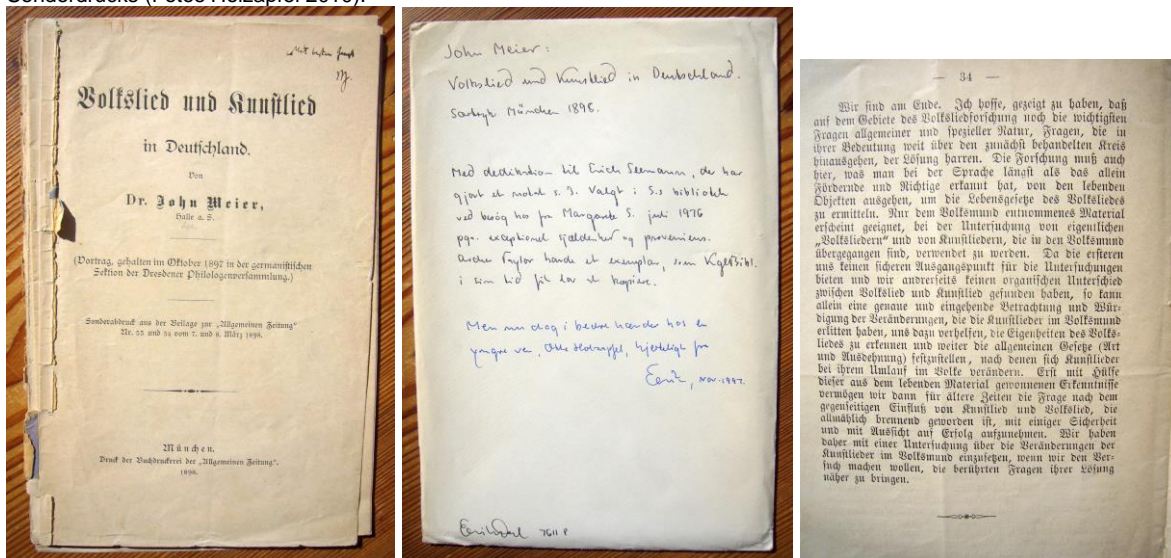 Sonderdrucks (Fotos Holzapfel 2010).
Volkslied und Kunstlied
in Deutschland.
Von
Dr. John Meier,
Halle a. S.
(Vortrag, gehalten im Oktober 1897 in der germanistischen
Sektion der Dresdener Philologenversammlung.)
Sonderabdruck aus der Beilage zur „Allgemeinen Zeitung“
Nr. 53 und 54 vom 7. und 8. März 1898.
München.
Druck der Buchdruckerei der „Allgemeinen Zeitung“.
1898.
John Meier:
Volkslied und Kunstlied in Deutschland.
München 1898.
Med dedikation til Erich Seemann, der har
gjort et notat s. 3. Valgt i S.s bibliotek
ved besøg hos fru Margarete S. juli 1976
pga. exceptionel sjældenhed og proveniens.
Archer Taylor havde et exemplar, som Kgl. Bibl.
i sin tid fik lov at kopiere.
Men nu dog i bedre hænder hos en
yngre ven, Otto Holzapfel, hjerteligt fra
Erik, nov. 1997.
Erik Dal 7611 P
— 34 —
Wir sind am Ende. Ich hoffe, gezeigt zu haben, daß
auf dem Gebiete des Volksliedforschung noch die wichtigsten
Fragen allgemeiner und spezieller Natur, Fragen, die in
ihrer Bedeutung weit über den zunächst behandelten Kreis
hinausgehen, der Lösung harren. Die Forschung muß auch
hier, was man bei der Sprache längst als das allein
Fördernde und Richtige erkannt hat, von den lebenden
Objekten ausgehen, um die Lebensgesetze des Volksliedes
zu ermitteln. Nur dem Volksmund entnommenes Material
erscheint geeignet, bei der Untersuchung von eigentlichen
„Volksliedern“ und von Kunstliedern, die in den Volksmund
übergegangen sind, verwendet zu werden. Da die ersteren
uns keinen sicheren Ausgangspunkt für die Untersuchungen
bieten und wir andrerseits keinen organischen Unterschied
zwischen Volkslied und Kunstlied gefunden haben, so kann
allein eine genaue und eingehende Betrachtung und Wür-
digung der Veränderungen, die die Kunstlieder im Volksmund
erlitten haben, uns dazu verhelfen, die Eigenheiten des Volks-
liedes zu erkennen und weiter die allgemeinen Gesetze (Art
und Ausdehnung) festzustellen, nach denen sich Kunstlieder
bei ihrem Umlauf im Volke verändern. Erst mit Hülfe
dieser aus dem lebenden Material gewonnenen Erkenntnisse
vermögen wir dann für ältere Zeiten die Frage nach dem
gegenseitigen Einfluß von Kunstlied und Volkslied, die
allmählich brennend geworden ist, mit einiger Sicherheit
und mit Aussicht auf Erfolg aufzunehmen. Wir haben
daher mit einer Untersuchung über die Veränderungen der
Kunstlieder im Volksmund einzusetzen, wenn wir den Ver-
such machen wollen, die berührten Fragen ihrer Lösung
näher zu bringen.